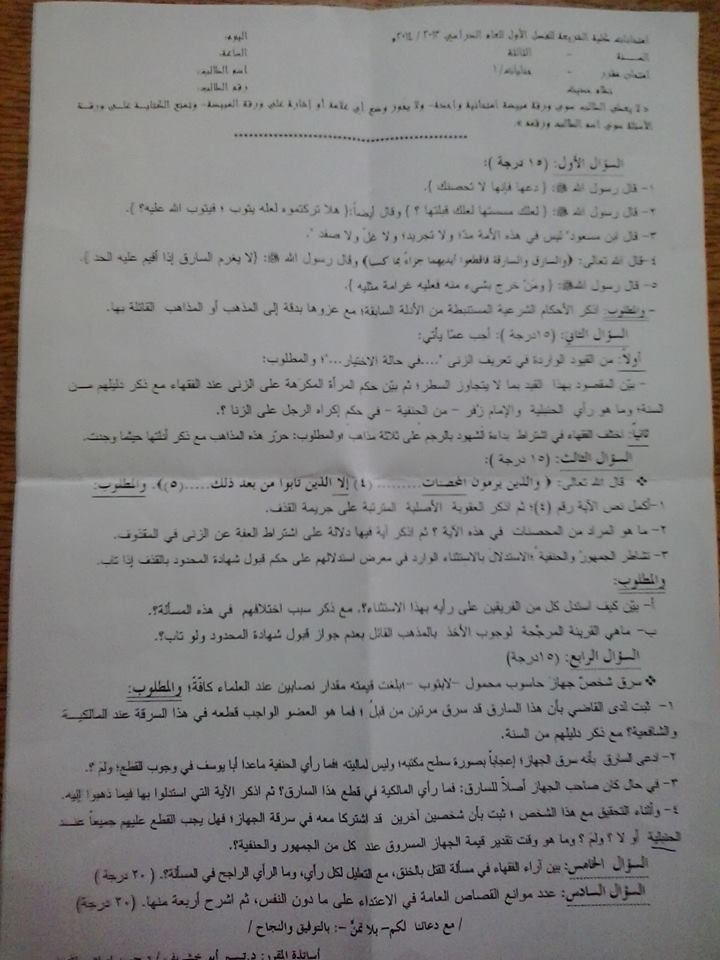 امتحانات كلية الشريعة للفصل الأول للعام الدراسي ٢٠١٣ / ٢٠١٤م اليوم:
السنة - الثالثة الساعة:
امتحان مقرر - جنايات/١ اسم الطالب:
نظام حديث رقم الطالب:
« لا يعطى الطالب سوى ورقة مبيضة امتحانية واحدة- ولا يجوز وضع أي علامة أو إشارة على ورقة المبيضة- وتمنع الكتابة على ورقة
الأسئلة سوى اسم الطالب ورقمه ».
السؤال الأول: (١٥ درجة ):
١- قال رسول الله ﷺ: { دعها فإنها لا تحصنك }.
٢- قال رسول الله ﷺ: { لعلك مسستها لعلك قبلتها ؟ } وقال أيضاً:{ هلا تركتموه لعله يتوب ؛ فيتوب الله عليه؟ }.
٣- قال ابن مسعود" ليس في هذه الأمة مدّ؛ ولا تجريد؛ ولا غلّ ولا صفد ".
٤-قال الله تعالى: ﴿والسارق والسارقة فاقطعوا أيديهما جزاءً بما كسبا﴾ وقال رسول الله ﷺ: {لا يغرم السارق إذا أقيم عليه الحد }.
٥- قال رسول اللهﷺ: { ومَنْ خرج بشيء منه فعليه غرامة مثليه }.
- والمطلوب: اذكر الأحكام الشرعية المستنبطة من الأدلة السابقة؛ مع عزوها بدقة إلى المذهب أو المذاهب القائلة بها.
السؤال الثاني: (١٥درجة ): أجب عمّا يأتي:
أولاً: من القيود الواردة في تعريف الزنى "....في حالة الاختيار..."؛ والمطلوب:
- بيّن المقصود بهذا القيد بما لا يتجاوز السطر؛ ثم بيّن حكم المرأة المكرهة على الزنى عند الفقهاء مع ذكر دليلهم من
السنة؛ وما هو رأي الحنبلية والإمام زُفر - من الحنفية - في حكم إكراه الرجل على الزنا ؟.
ثانياً: اختلف الفقهاء في اشتراط بداءة الشهود بالرجم على ثلاثة مذاهب ؛والمطلوب: حرّر هذه المذاهب مع ذكر أدلتها حيثما وجدت.
السؤال الثالث: (١٥ درجة ):
❖ قال الله تعالى: ﴿ والذين يرمون المحصنات..........(٤) إلا الذين تابوا من بعد ذلك......(٥)﴾. والمطلوب:
١-أكمل نص الآية رقم (٤)؛ ثم اذكر العقوبة الأصلية المترتبة على جريمة القذف.
٢- ما هو المراد من المحصنات في هذه الآية ؟ ثم اذكر آية فيها دلالة على اشتراط العفة عن الزنى في المقذوف.
٣- تشاطر الجمهورُ والحنفية ؛الاستدلالَ بالاستثناء الوارد في معرض استدلالهم على حكم قبول شهادة المحدود بالقذف إذا تاب.
والمطلوب:
أ- بيّن كيف استدل كل من الفريقين على رأيه بهذا الاستثناء؟. مع ذكر سبب اختلافهم في هذه المسألة؟.
ب- ماهي القرينة المرجّحة لوجوب الأخذ بالمذهب القائل بعدم جواز قبول شهادة المحدود ولو تاب؟.
السؤال الرابع: (١٥درجة)
❖ سرق شخصٌ جهازَ حاسوب محمول -لابتوب -؛بلغت قيمته مقدار نصابين عند العلماء كافّة؛ والمطلوب:
١- ثبت لدى القاضي بأن هذا السارق قد سرق مرتين من قبلُ ؛ فما هو العضو الواجب قطعه في هذا السرقة عند المالكية
والشافعية؟ مع ذكر دليلهم من السنة.
٢-ادعى السارق بأنه سرق الجهاز؛ إعجاباً بصورة سطح مكتبه؛ وليس لماليته ؛فما رأي الحنفية ماعدا أبا يوسف في وجوب القطع؛ ولمَ ؟.
٣- في حال كان صاحب الجهاز أصلاً للسارق: فما رأي المالكية في قطع هذا السارق؟ ثم اذكر الآية التي استدلوا بها فيما ذهبوا إليه.
٤- وأثناء التحقيق مع هذا الشخص ؛ ثبت بأن شخصين آخرين قد اشتركا معه في سرقة الجهاز؛ فهل يجب القطع عليهم جميعاً عند
الحنبلية أو لا ؟ ولمَ ؟ وما هو وقت تقدير قيمة الجهاز المسروق عند كل من الجمهور والحنفية؟.
السؤال الخامس: بين آراء الفقهاء في مسألة القتل بالخنق، مع التعليل لكل رأي، وما الرأي الراجح في المسألة؟. ( ٢٠ درجة )
السؤال السادس: عدد موانع القصاص العامة في الاعتداء على ما دون النفس، ثم اشرح أربعة منها. (٢٠ درجة)
/ مع دعائنا لكم- بلا تمنٍّ -: بالتوفيق والنجاح /
أساتذة المقرر: د.